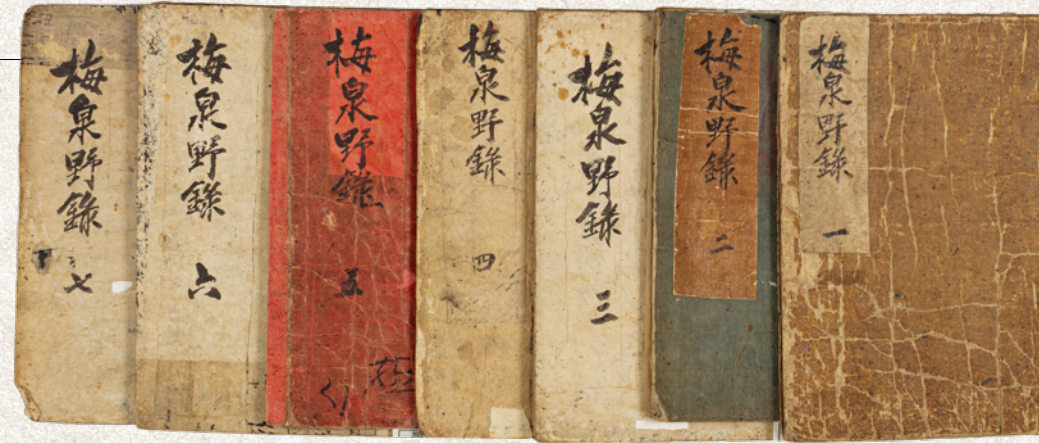 梅泉野錄 一
梅泉野錄 二
梅泉野錄 三
梅泉野錄 四
梅泉野錄 五
梅泉野錄 六
梅泉野錄 七